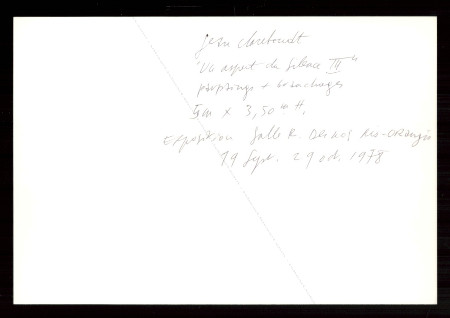 Jean Clareboudt
"Un aspect du silence III"
+ branchages
5m x 3,50m H.
exposition Salle R. Desnos Ris-Orangis
19 Sept. 29 oct. 1978